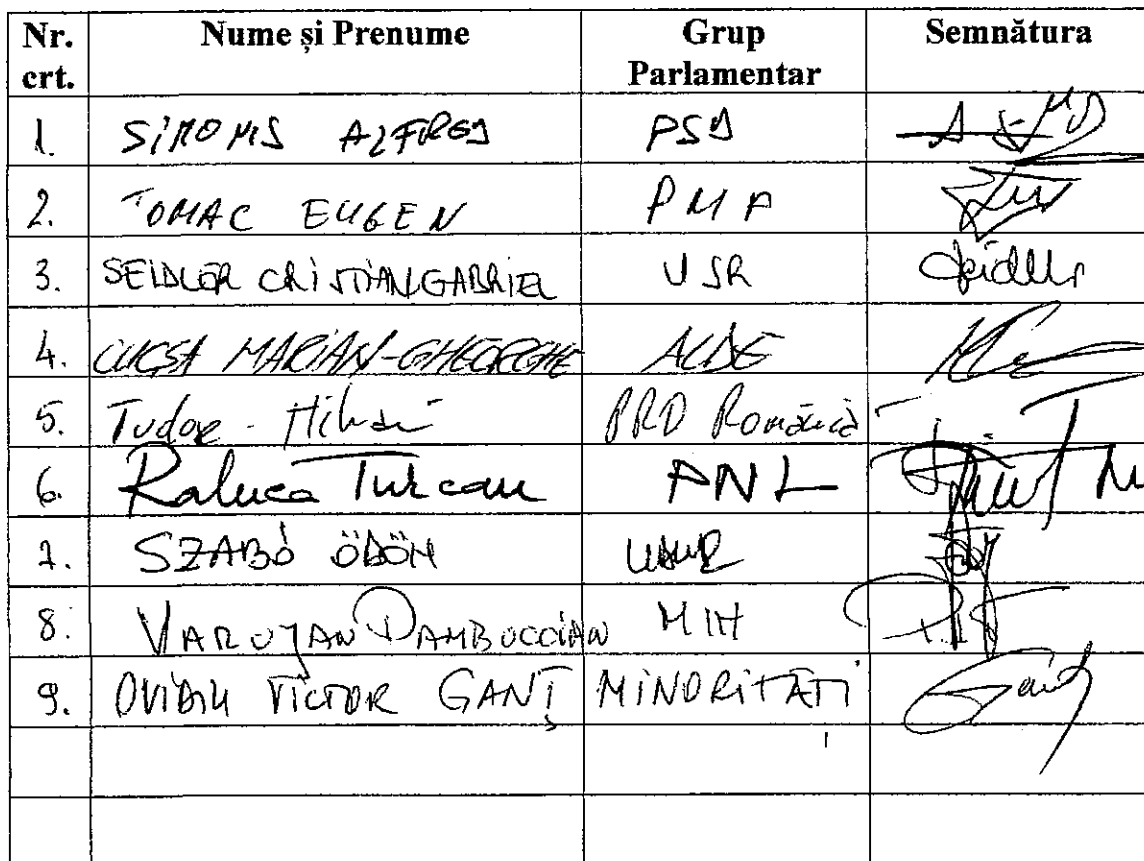 Nr. crt. Nume și Prenume Grup Parlamentar Semnătura
1. SIMONIS ALFRED PSD
2. TOMAC EUGEN PMP
3. SEIDLER CRISTIAN GABRIEL USR
4. CUCȘA MARIAN-GHEORGHE ALDE
5. Tudor - Mihai PRO România
6. Raluca Turcan PNL
7. SZABÓ ÖDÖN UDMR
8. VARUJAN PAMBUCCIAN MIN
9. OVIDIU VICTOR GANȚ MINORITĂȚI